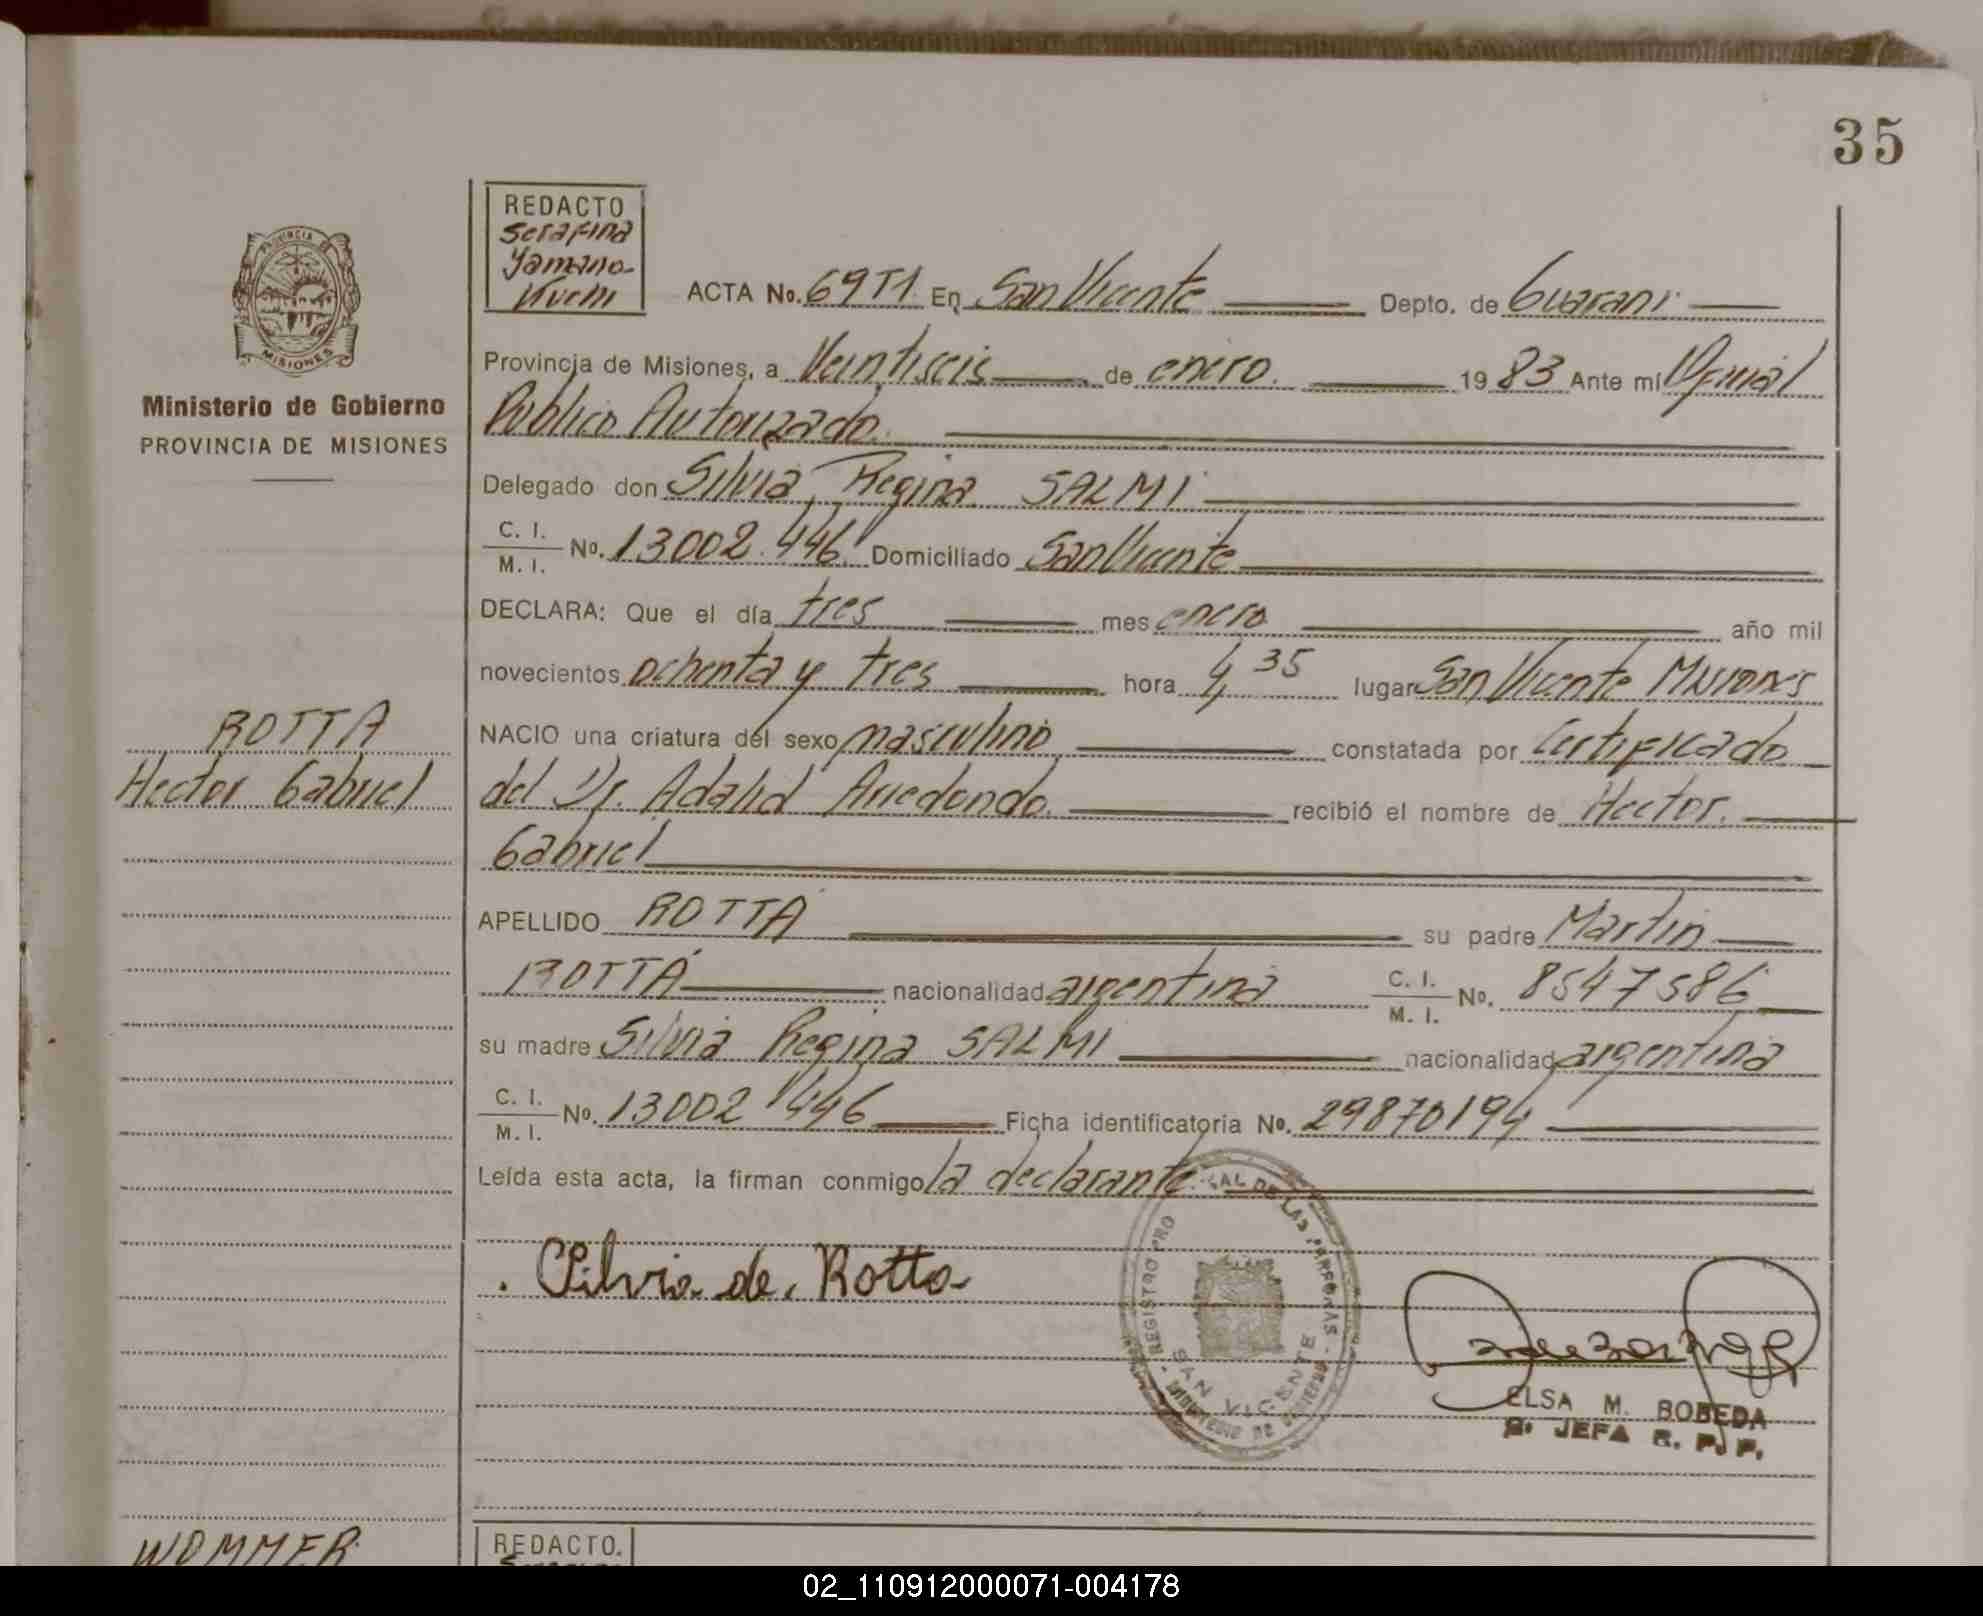 35
REDACTO
Serafina
Yamano
Kuchi
ACTA No. 69T1 En San Vicente Depto. de Guarani
PROVINCIA DE
MISIONES
Ministerio de Gobierno
PROVINCIA DE MISIONES
Provincia de Misiones, a Veintiseis de enero. 1983 Ante mí Oficial
Publico Autorizado.
Delegado don Silvia Regina SALMI
C. I.
M. I. No. 13002.446 Domiciliado San Vicente
DECLARA: Que el día tres mes enero año mil
novecientos ochenta y tres hora 4,35 lugar San Vicente Misiones
ROTTA
Hector Gabriel
NACIO una criatura del sexo masculino constatada por Certificado
del Dr. Adalid Arredondo. recibió el nombre de Hector.
Gabriel
APELLIDO ROTTA su padre Martin
ROTTA nacionalidad argentina C. I.
M. I. No. 8547586
su madre Silvia Regina SALMI nacionalidad argentina
C. I.
M. I. No. 13002446 Ficha identificatoria No. 29870194
Leída esta acta, la firman conmigo la declarante.
Silvia de Rotta
REGISTRO PRO AL DE LAS PERSONAS
SAN VICENTE
ELSA M. BOBEDA
JEFA R. P. P.
WOMMER
REDACTO.
02_110912000071-004178